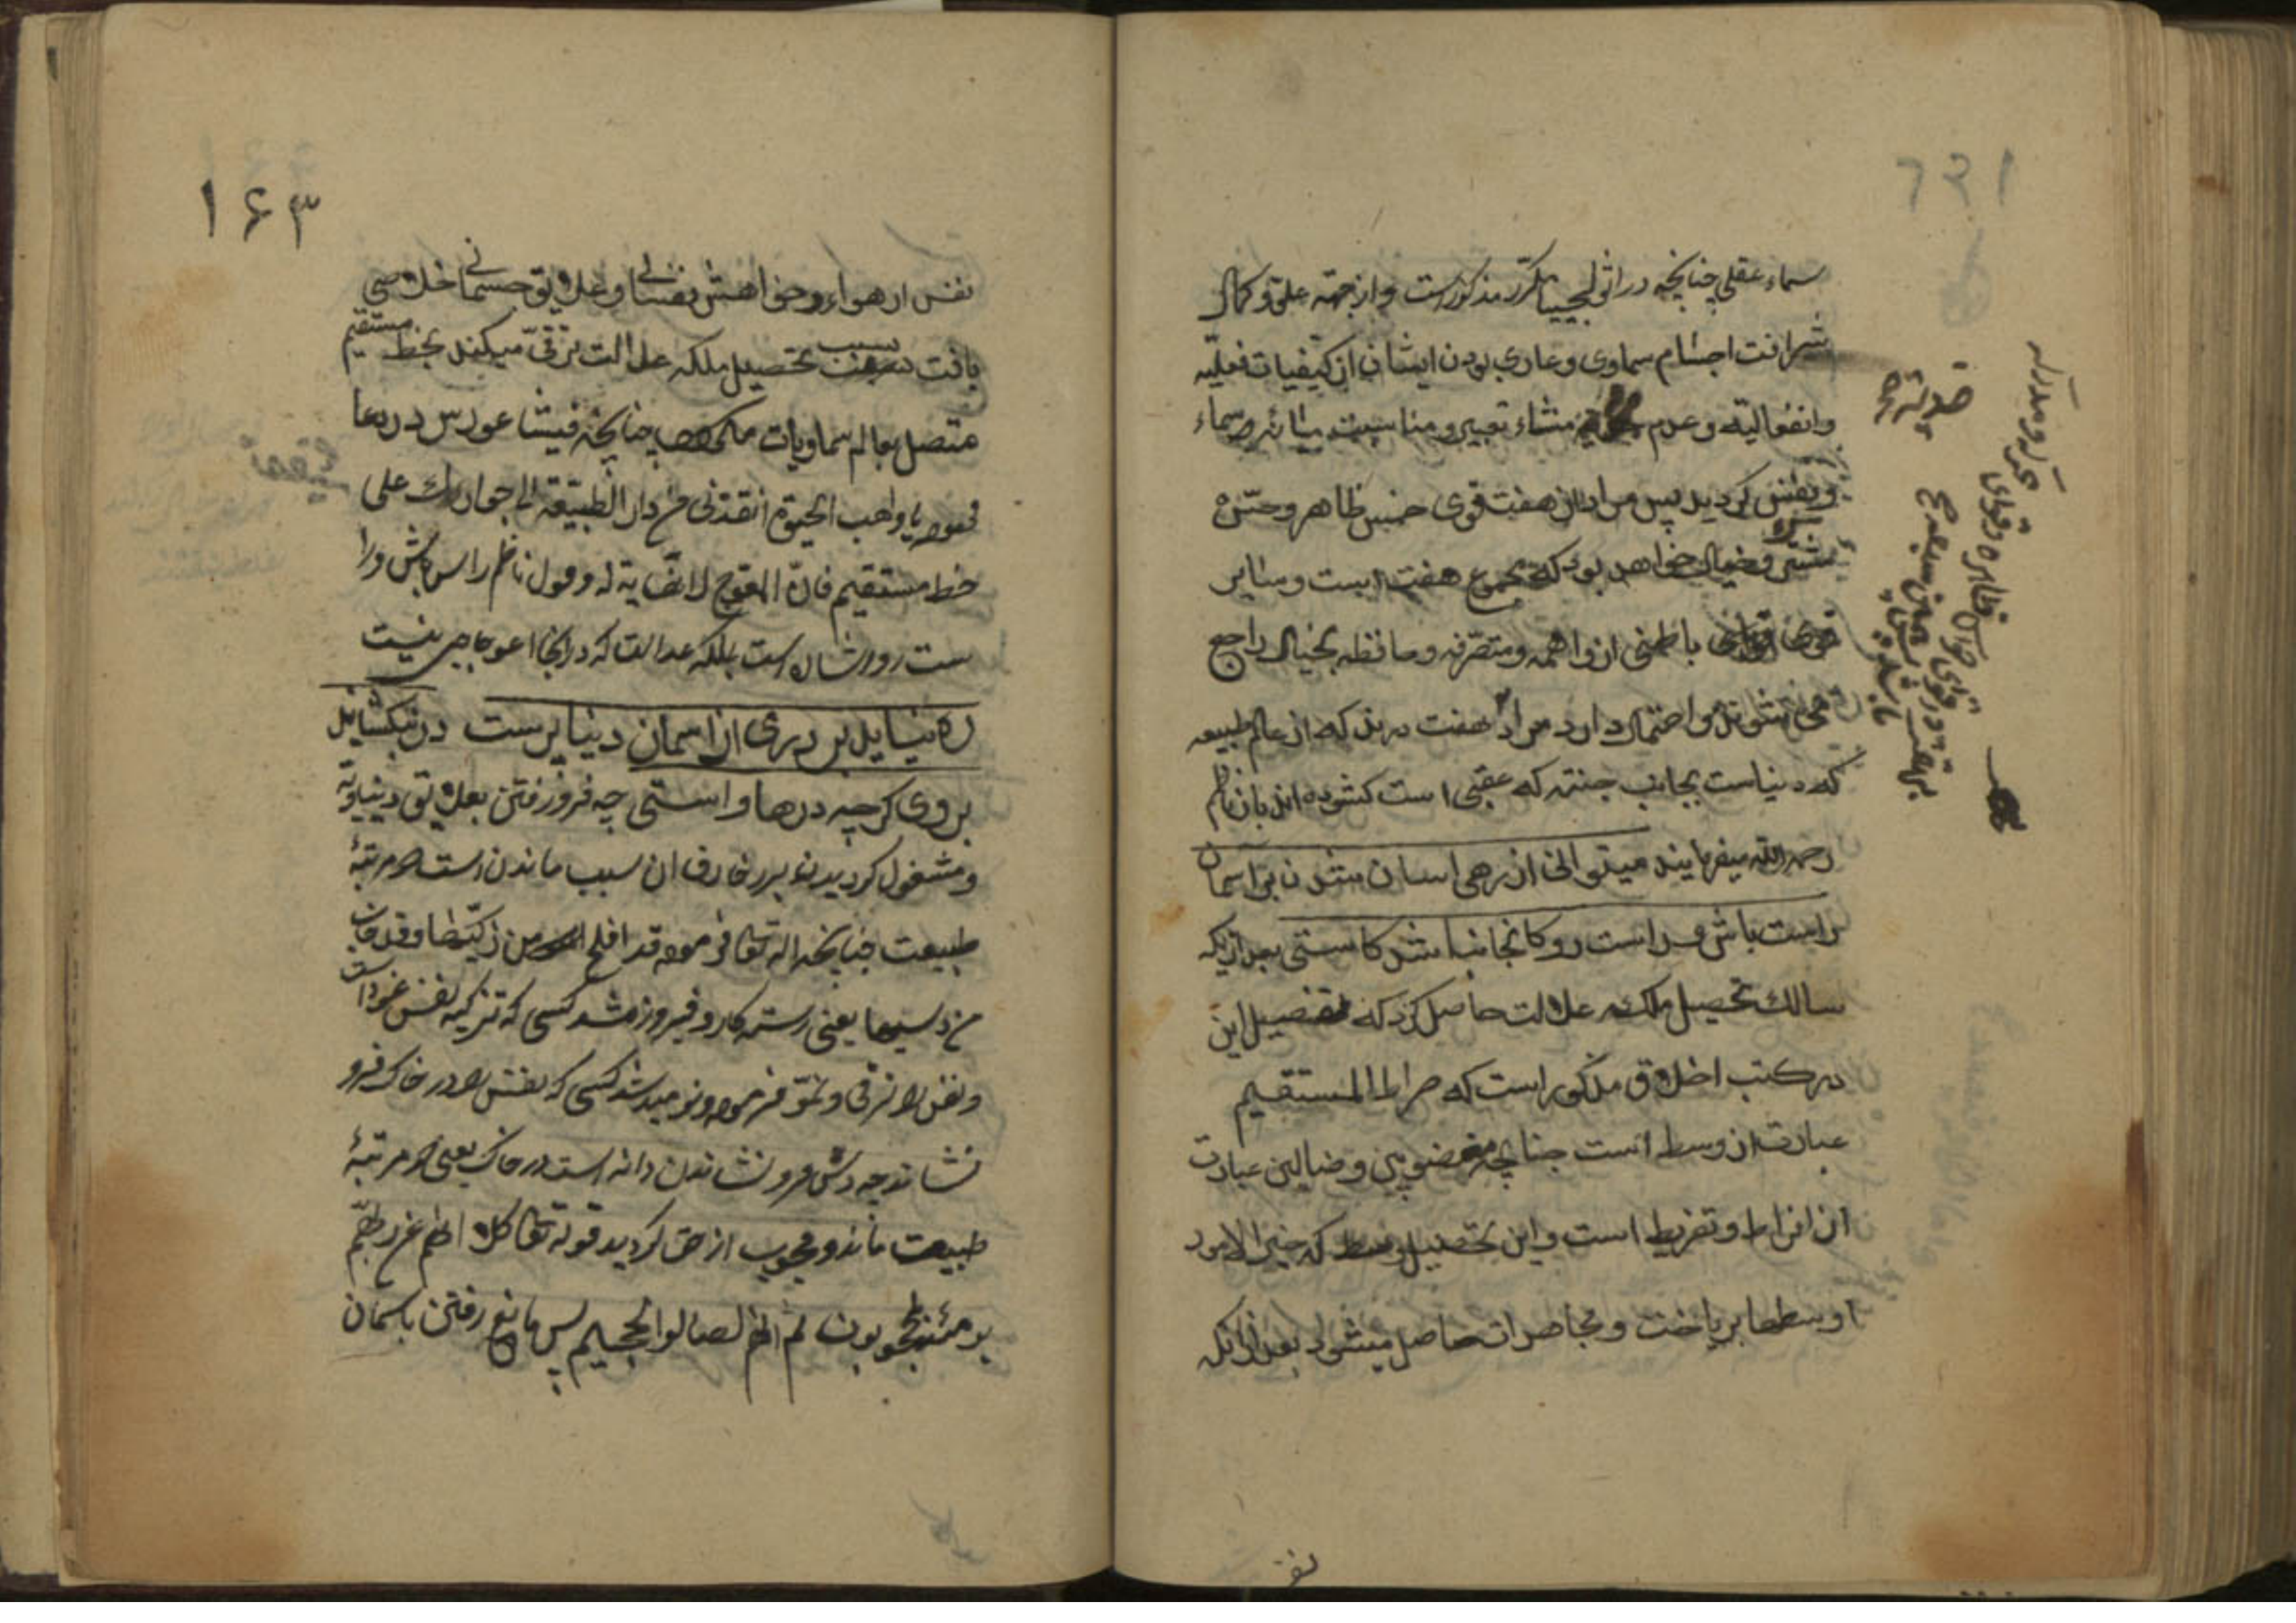 سماء عقلی چنانچه در اثولجییا مکرر مذکور است و از جهة علو و کمال
شرافت اجسام سماوی و عاری بودن ایشان از کیفیات فعلیه
وانفعالیه و عدم منشاء تعبیر و مناسبت سماء
و نفس کردید پس مراد از هفت قوی خمس ظاهر و حس
مشترک و خیال خواهد بود که مجموع هفت است و سایر
قوی باطنی از واهمه و متصرفه و حافظه بخیال راجع
می‌شوند و احتمال دارد مراد هفت در بند که از عالم طبیعه
که دنیاست بجانب جنته که عقبی است کشوده اند بان ناظم
رحمه الله میفرمایند میتوانی از رهی اسان شدن بر اسمان
راست باش و راست رو کانجا نباشد کاستی بعد از آنکه
سالک تحصیل ملکه عدالت حاصل کرد که تفصیل این
در کتب اخلاق مذکور است که صراط المستقیم
عبارت از وسط است چنانچه مغضوبین و ضالین عبارت
از افراط و تفریط است و این تحصیل وسط که خیر الامور
اوسطها بریاضت و مجاهدات حاصل میشود بعد از آنکه
نفس
۱۶۳
نفس از هواء و خواهش نفسانی و علایق جسمانی خلاصی
یافت بسبب تحصیل ملکه عدالت ترقی میکند بخط مستقیم
متصل بعالم سماویات چنانچه فیثاغورس در دعا
فرموده یا واهب الحیوة انقذنی من دار الطبیعة الی جوارک علی
خط مستقیم فان المعوج لا نهایة له و قول ناظم راس باش و را
ست رو اشاره است بملکه عدالت که در انجا اعوجاجی نیست
ره نیابد بر دری از اسمان دنیا پرست در نبکشایند
بر وی کرچه درها واستی چه فرو رفتن بعلایق دنیاویه
و مشغول کردیدن بزخارف ان سبب ماندن است در مرتبهٔ
طبیعت چنانچه اله تعالی فرموده قد افلح من زکیها و قد خاب
من دسیها یعنی رسته کار و فیروز شد کسی که تزکیه نفس خود
و نفس را ترقی و نمو فرموده و نومید شد کسی که نفس را در خاک فرو
نشاند چه دس فرو نشاندن دانه است در خاک یعنی در مرتبهٔ
طبیعت ماند و محجوب از حق کردید قوله تعالی کلا انهم عن ربهم
یومئذ لمحجوبون ثم انهم لصالوا الجحیم پس مانع رفتن باسمان